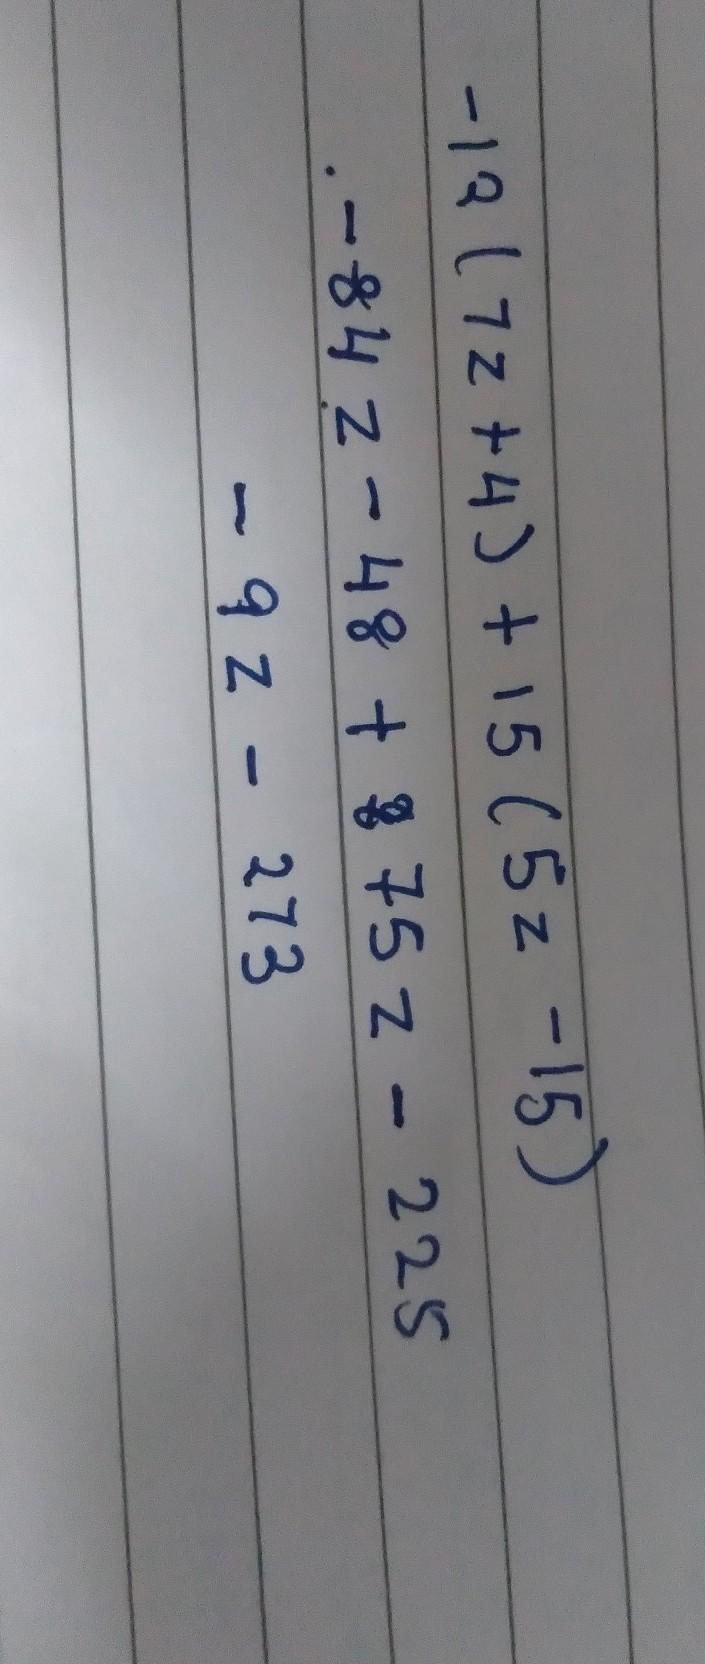 -12(7z+4)+15(5z-15)
-84z-48+75z-225
-9z-273